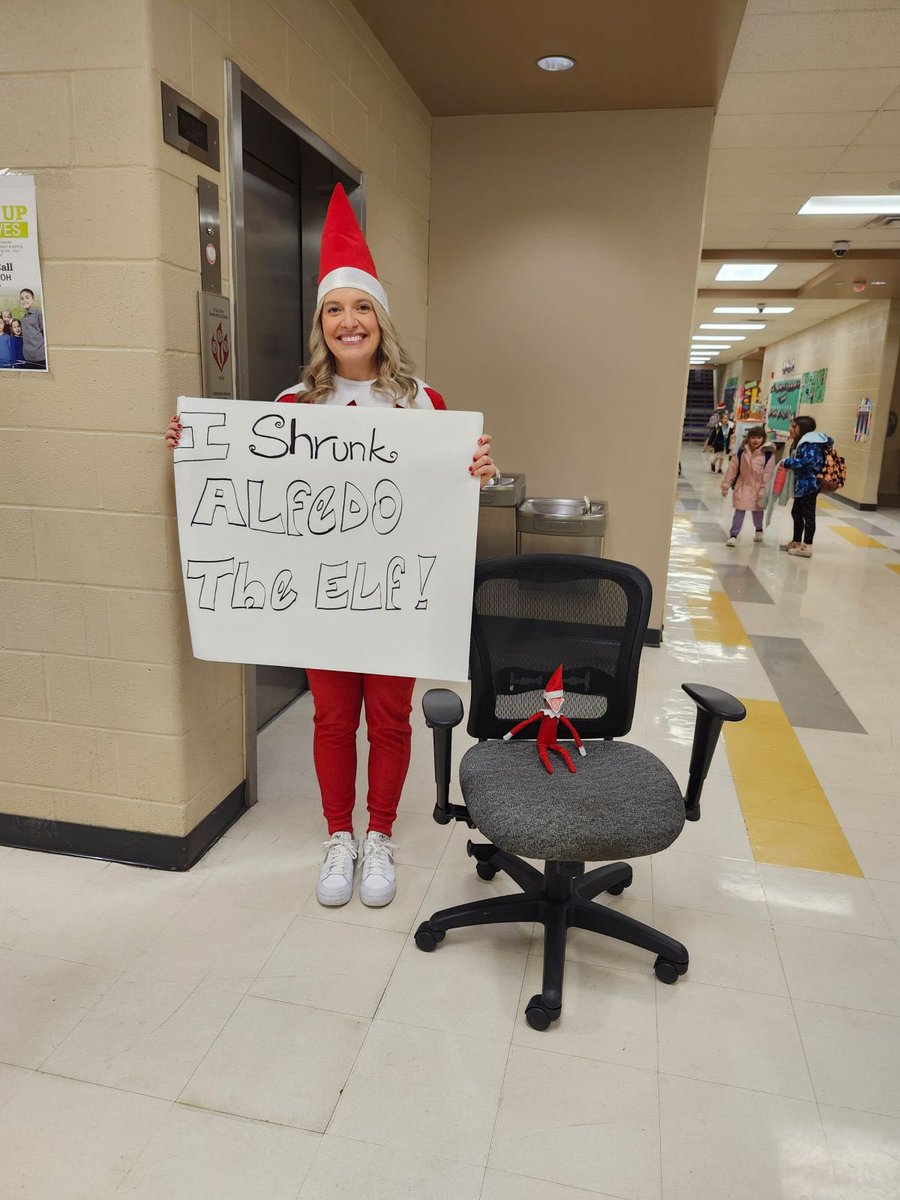 UP
VES
Call
OH
I Shrunk
ALfeDO
The Elf!